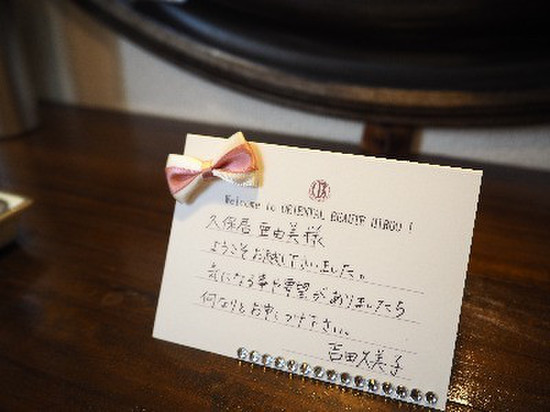 Welcome to ORIENTAL BEAUTE HIROO !
久保居 亜由美様
ようこそお越し下さいました。
気になる事や要望がありましたら
何なりとお申しつけ下さい。
吉田久美子